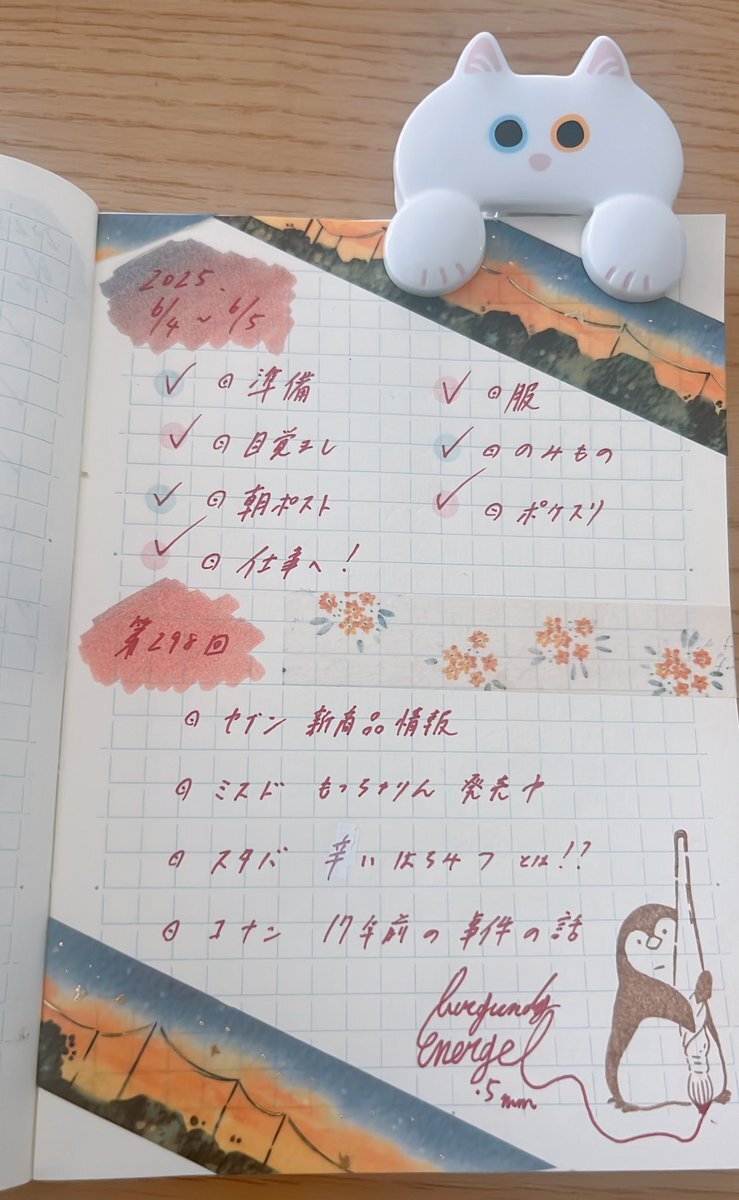 2025.
6/4 ~ 6/5
✓ ⊙ 準備
✓ ⊙ 服
✓ ⊙ 目覚まし
✓ ⊙ のみもの
✓ ⊙ 朝ポスト
✓ ⊙ ポケスリ
✓ ⊙ 仕事へ!
第298回
⊙ セブン 新商品情報
⊙ ミスド もっちゅりん 発売中
⊙ スタバ 辛いはちみつとは!?
⊙ コナン 17年前の事件の話
burgundy
energel
.5mm